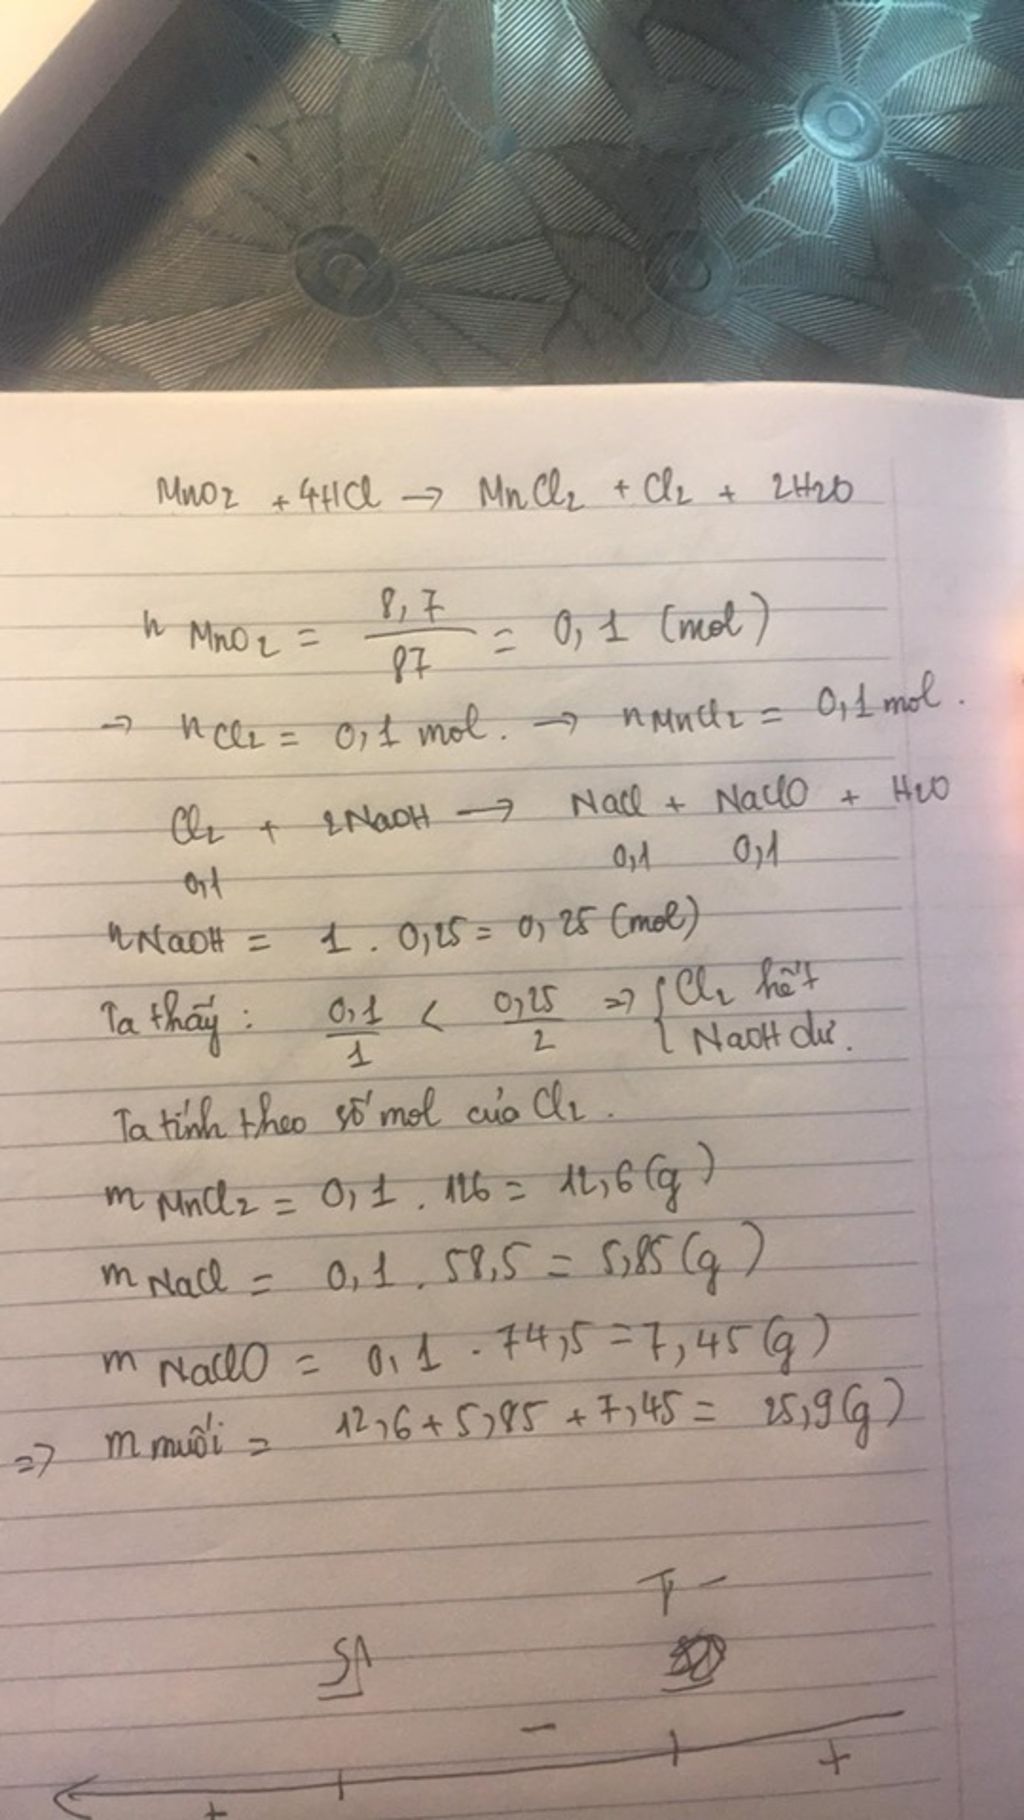 MnO2 + 4HCl → MnCl2 + Cl2 + 2H2O
n MnO2 = 8,7 / 87 = 0,1 (mol)
→ nCl2 = 0,1 mol. → nMnCl2 = 0,1 mol.
Cl2 + 2NaOH → NaCl + NaClO + H2O
0,1 0,1 0,1
nNaOH = 1 . 0,25 = 0,25 (mol)
Ta thấy: 0,1 / 1 < 0,25 / 2 => { Cl2 hết
NaOH dư.
Ta tính theo số mol của Cl2.
m MnCl2 = 0,1 . 126 = 12,6 (g)
m NaCl = 0,1 . 58,5 = 5,85 (g)
m NaClO = 0,1 . 74,5 = 7,45 (g)
=> m muối = 12,6 + 5,85 + 7,45 = 25,9 (g)
-
+ +